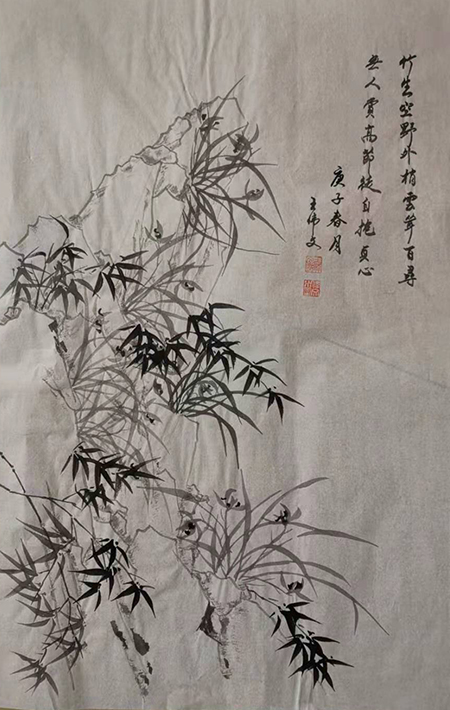 竹生空野外梢雲聳百尋
無人賞高節徒自抱貞心
庚子春月
王偉文